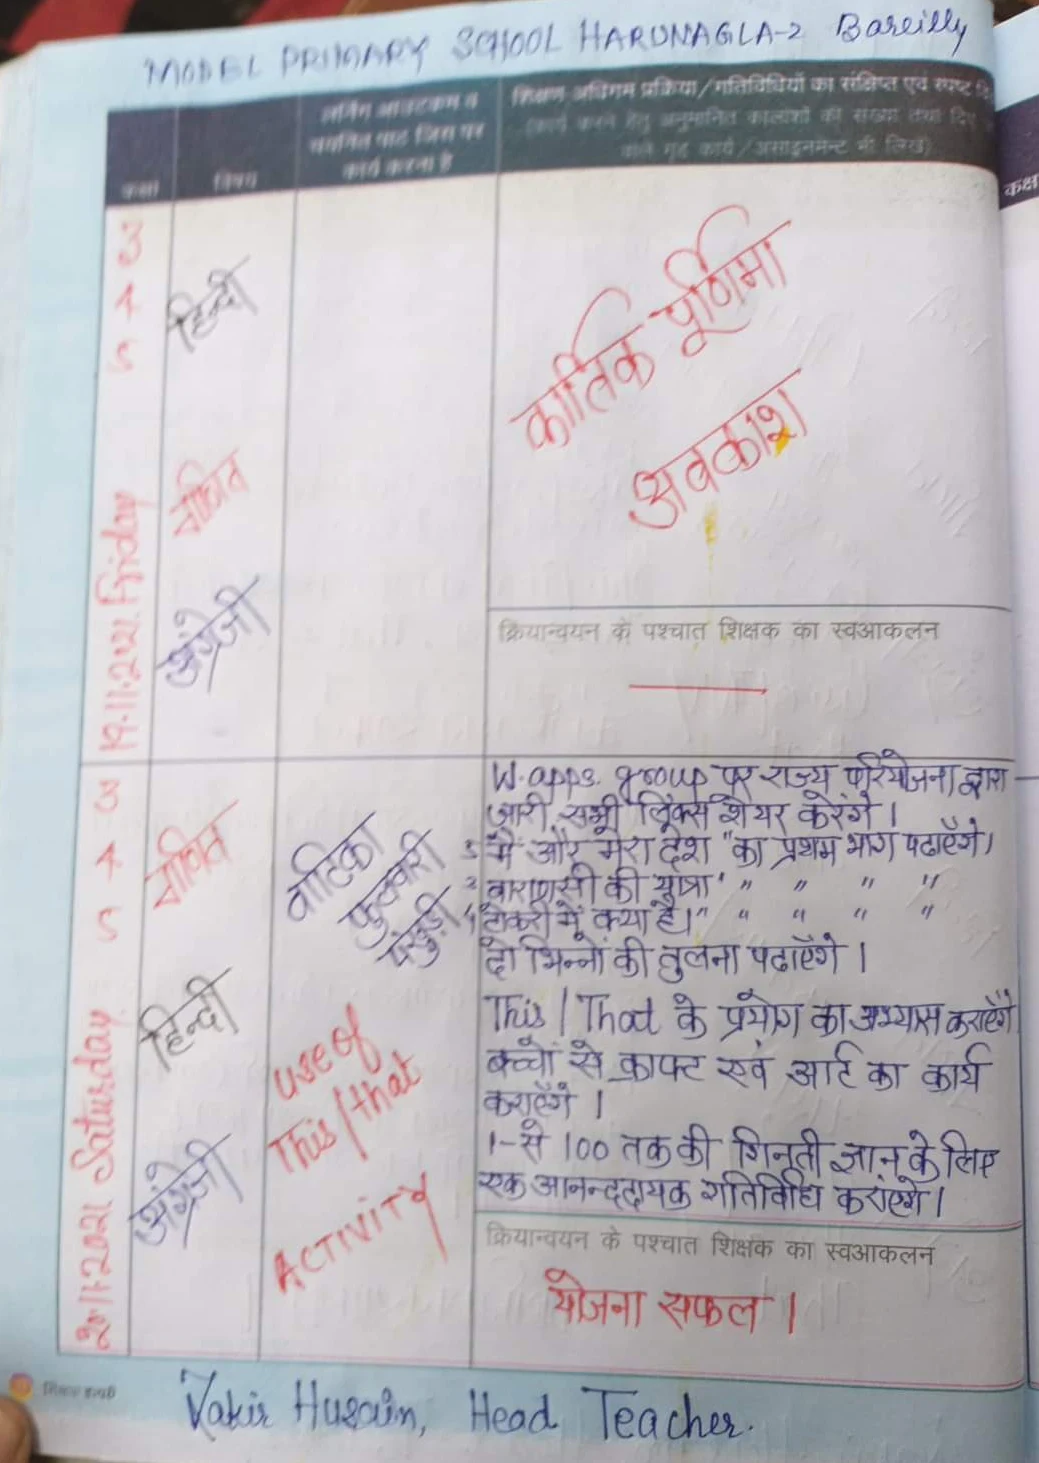 MODEL PRIMARY SCHOOL HARUNAGLA-2 Bareilly
कक्षा
विषय
लर्निंग आउटकम व
चयनित पाठ जिस पर
कार्य करना है
शिक्षण अधिगम प्रक्रिया/गतिविधियों का संक्षिप्त एवं स्पष्ट
(कार्य करने हेतु अनुमानित कालांशों की संख्या तथा दिए
वाले गृह कार्य/असाइनमेंट भी लिखें)
कक्ष
3
4
5
19.11.2021 Friday
हिन्दी
गणित
अंग्रेजी
कार्तिक पूर्णिमा
अवकाश
क्रियान्वयन के पश्चात शिक्षक का स्वआकलन
3
4
5
20/11/2021 Saturday
गणित
हिन्दी
अंग्रेजी
वाटिका
फुलवारी
पंखुड़ी
use of
This/that
ACTIVITY
W.apps. group पर राज्य परियोजना द्वारा
जारी सभी लिंक्स शेयर करेंगे।
5 "मैं और मेरा देश" का प्रथम भाग पढाएँगे।
वाराणसी की यात्रा" " " " "
टोकरी में क्या है।" " " " "
दो भिन्नों की तुलना पढाएँगे।
This/That के प्रयोग का अभ्यास कराएँगे
बच्चों से क्राफ्ट एवं आर्ट का कार्य
कराएँगे।
1-से 100 तक की गिनती ज्ञान के लिए
एक आनन्ददायक गतिविधि कराएंगे।
क्रियान्वयन के पश्चात शिक्षक का स्वआकलन
योजना सफल।
शिक्षक डायरी
Yakir Husain, Head Teacher.